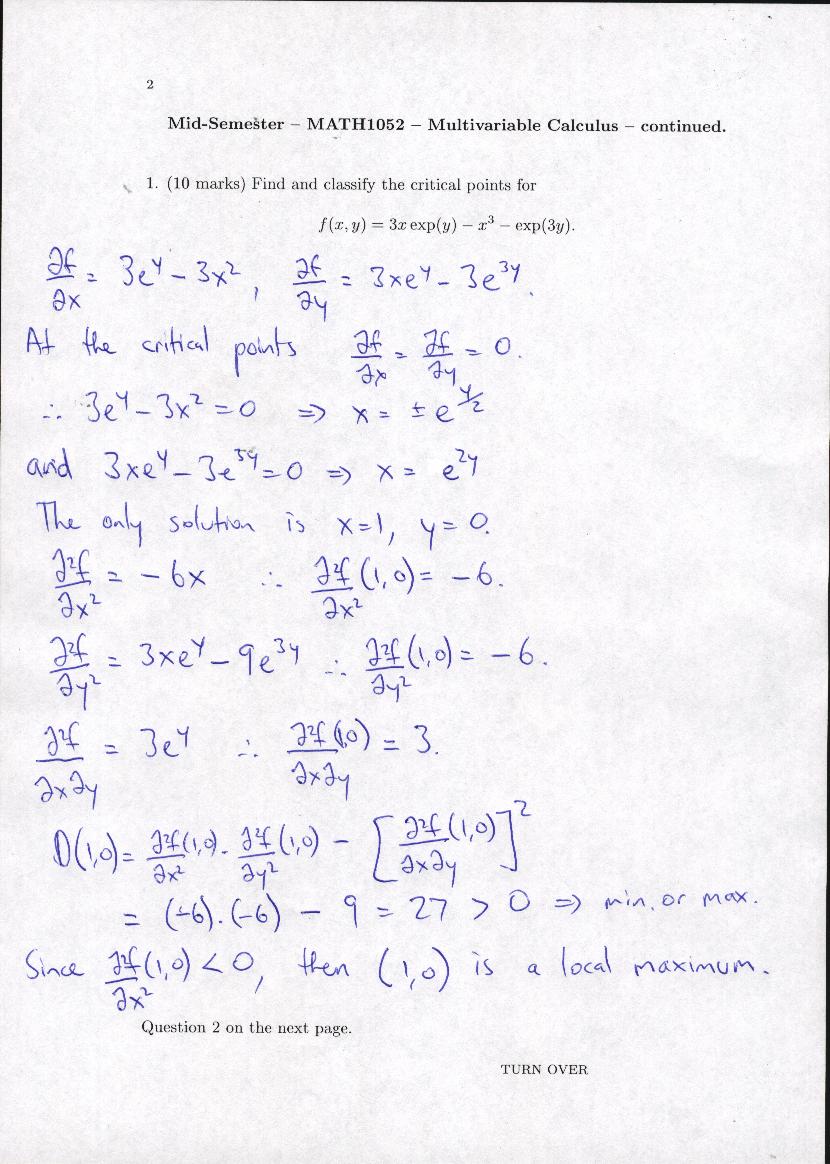 2
Mid-Semester – MATH1052 – Multivariable Calculus – continued.
1. (10 marks) Find and classify the critical points for
f(x, y) = 3x exp(y) − x³ − exp(3y).
∂f/∂x = 3e^y − 3x², ∂f/∂y = 3xe^y − 3e^{3y}.
At the critical points ∂f/∂x = ∂f/∂y = 0.
∴ 3e^y − 3x² = 0 ⇒ x = ± e^{y/2}
and 3xe^y − 3e^{3y} = 0 ⇒ x = e^{2y}
The only solution is x=1, y=0.
∂²f/∂x² = −6x ∴ ∂²f/∂x² (1,0) = −6.
∂²f/∂y² = 3xe^y − 9e^{3y} ∴ ∂²f/∂y² (1,0) = −6.
∂²f/∂x∂y = 3e^y ∴ ∂²f/∂x∂y (1,0) = 3.
D(1,0) = ∂²f/∂x² (1,0) . ∂²f/∂y² (1,0) − [∂²f/∂x∂y (1,0)]²
= (−6).(−6) − 9 = 27 > 0 ⇒ min. or max.
Since ∂²f/∂x² (1,0) < 0, then (1,0) is a local maximum.
Question 2 on the next page.
TURN OVER